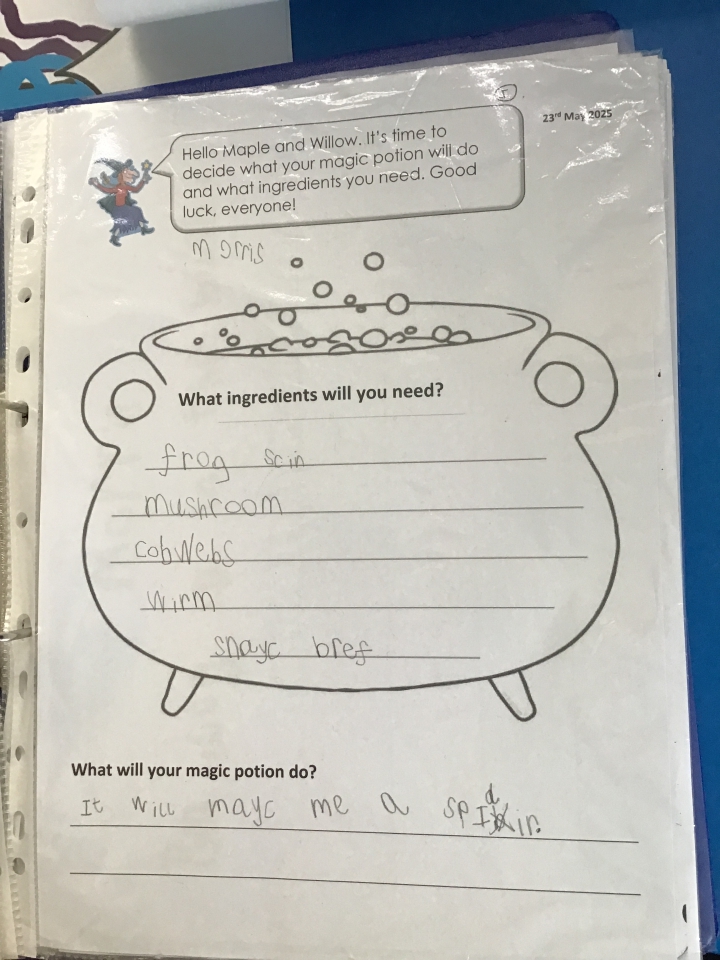 I
23rd May 2025
Hello Maple and Willow. It's time to
decide what your magic potion will do
and what ingredients you need. Good
luck, everyone!
Morris
What ingredients will you need?
frog scin
mushroom
cobwebs
wirm
snayc bref
What will your magic potion do?
It will mayc me a spIdir.